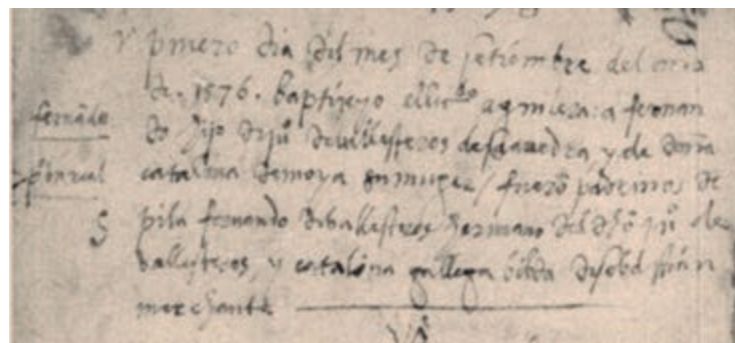 primero dia del mes de setiembre del
de .1576. baptize yo el licdo aguilera a fernan
fernãdo
do hijo de juº de vallesteros desaavedra, y de doña
catalina de moya su muger / fuerõ padrinos de
pila fernando de vallesteros hermano del dhõ juº de
vallesteros, y catalina gallega bibda de
merchante